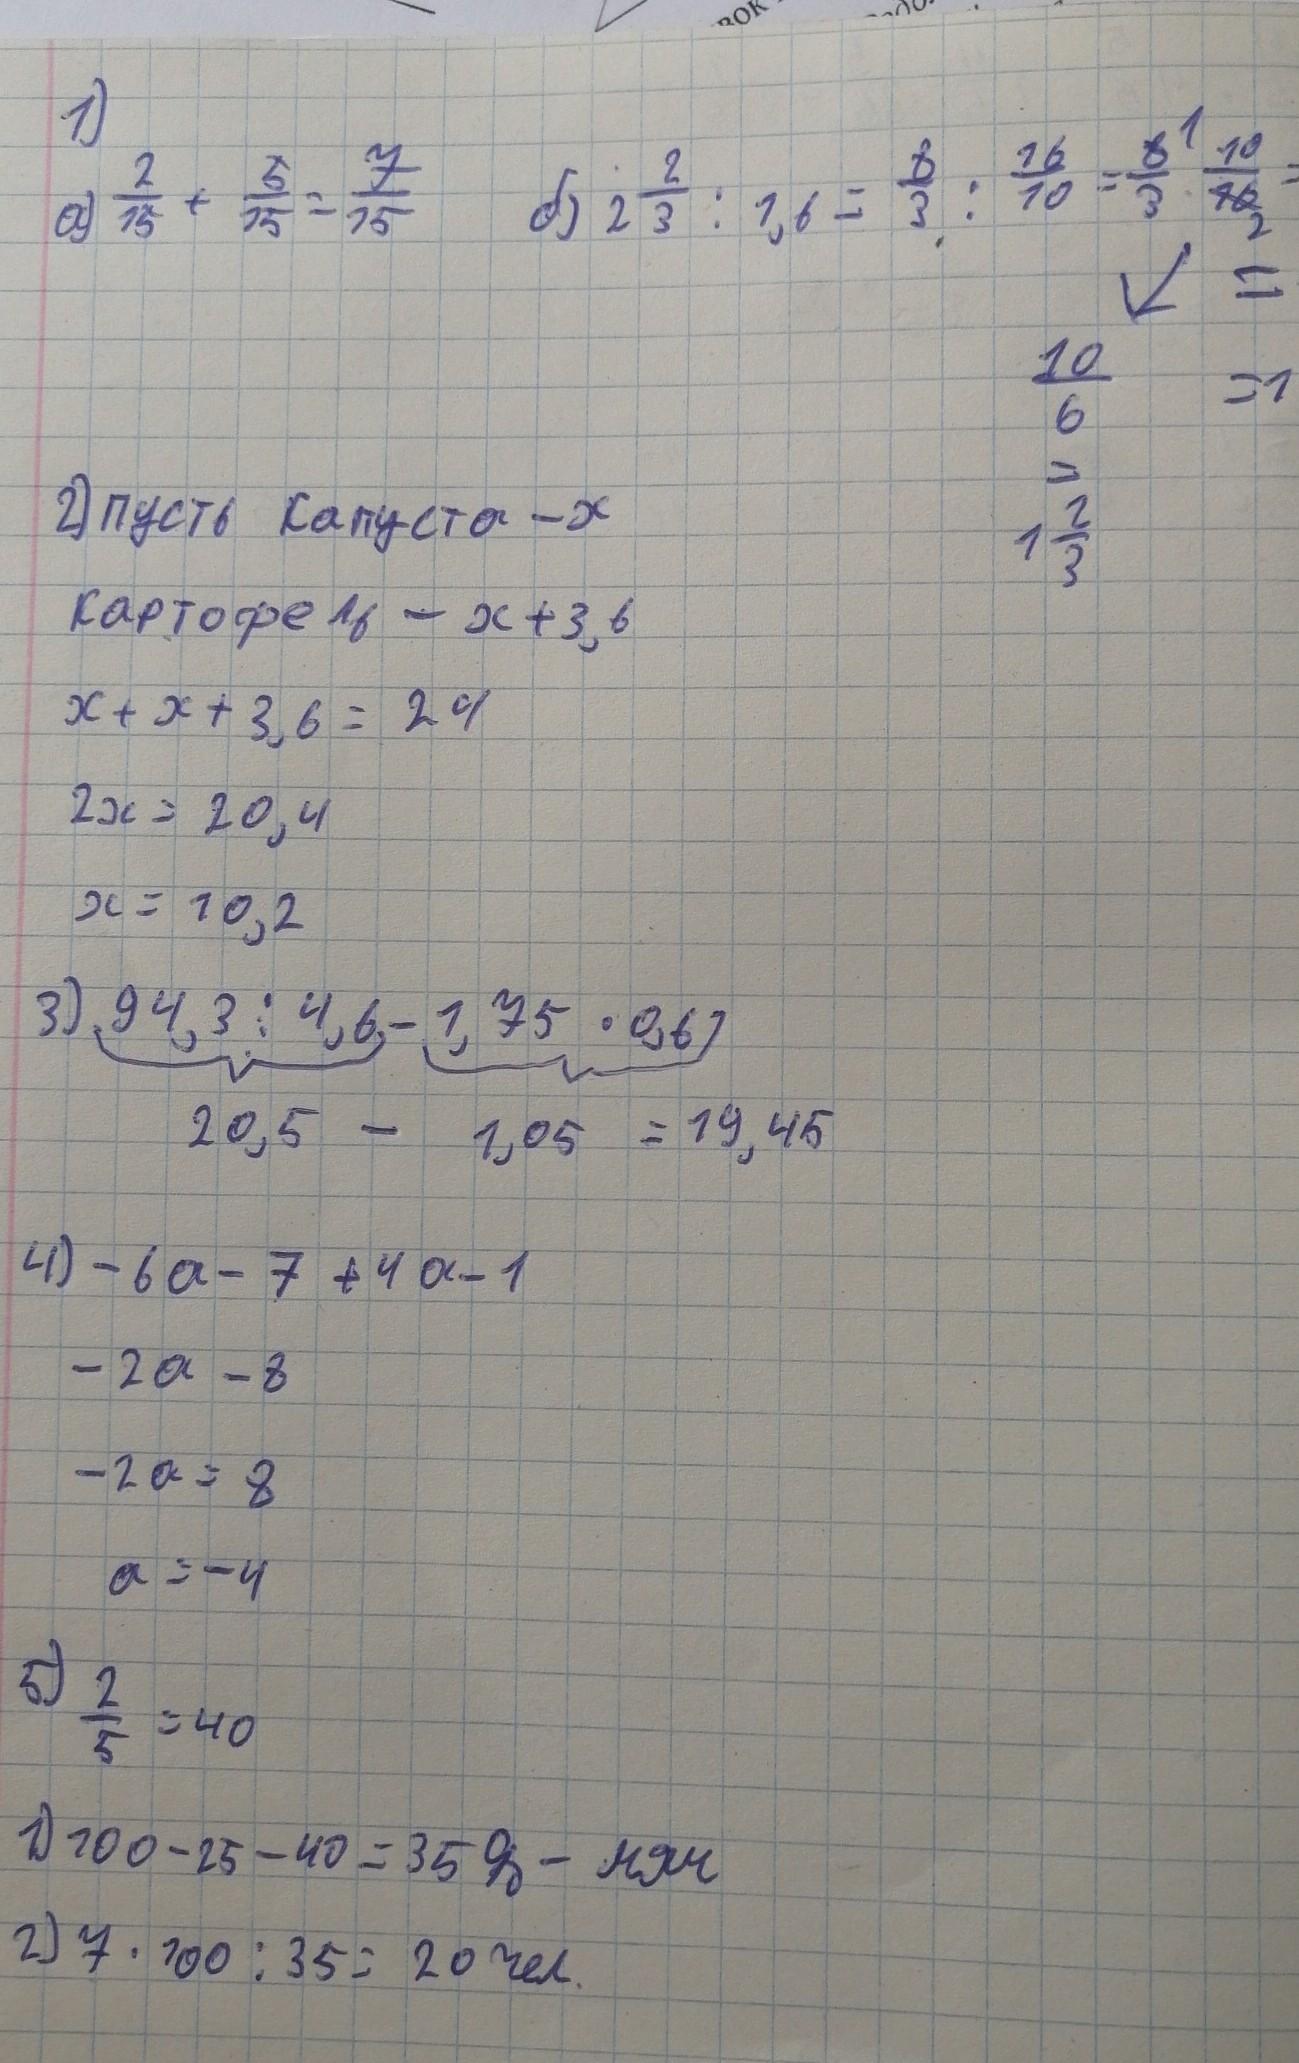 вок
1)
а) 2/15 + 5/15 = 7/15 б) 2 2/3 : 1,6 = 8/3 : 16/10 = 8/3 1 10/16 2 =
=
10/6 = 1
=
1 2/3
2) Пусть капуста - x
картофель - x + 3,6
x + x + 3,6 = 24
2x = 20,4
x = 10,2
3) 94,3 : 4,6 - 1,75 · 0,6)
20,5 - 1,05 = 19,45
4) - 6a - 7 + 4a - 1
- 2a - 8
- 2a = 8
a = - 4
5) 2/5 = 40
1) 100 - 25 - 40 = 35 % - мяч
2) 7 · 100 : 35 = 20 чел.